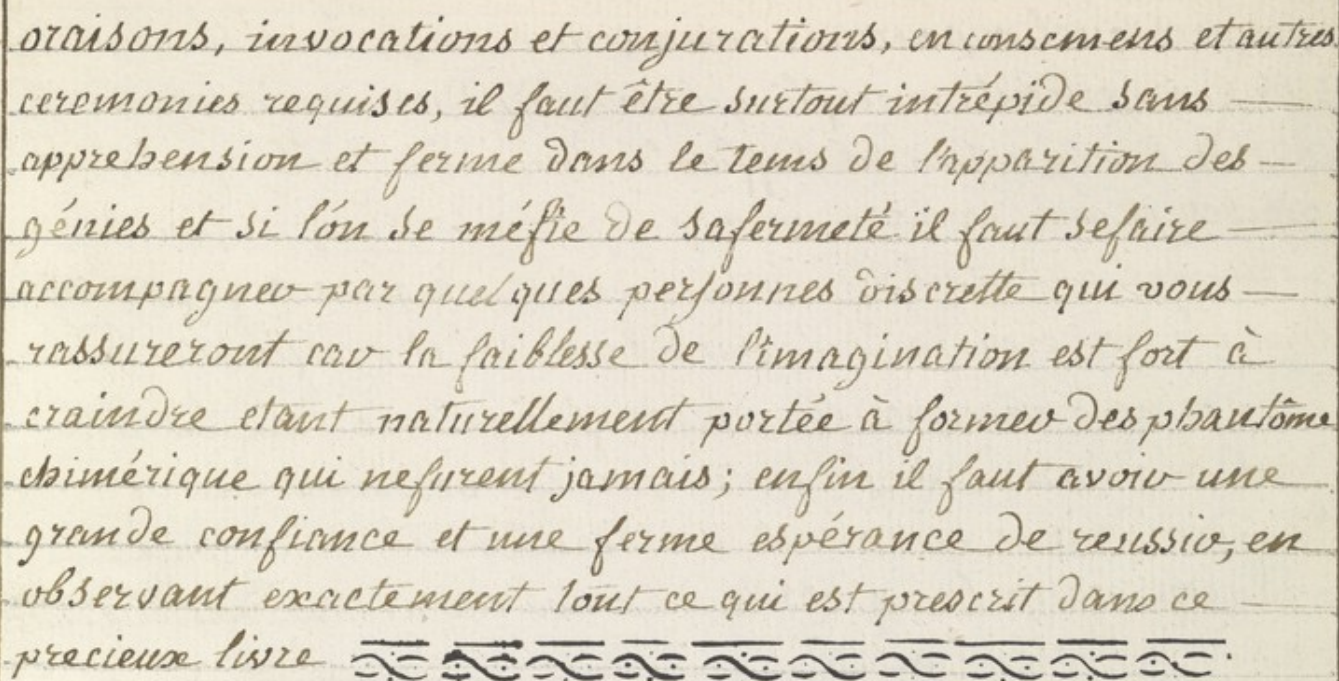 oraisons, invocations et conjurations, en consemens et autres
ceremonies requises, il faut être surtout intrépide sans
apprehension et ferme dans le tems de l'apparition des
génies et si l'ón se méfie de safermeté il faut sefaire
accompagner par quelques personnes discrette qui vous
rassureront car la faiblesse de l'imagination est fort à
craindre etant naturellement portée à former des phantôme
chimérique qui nefurent jamais; enfin il faut avoir une
grande confiance et une ferme espérance de reussir, en
observant exactement tout ce qui est prescrit dans ce
precieux livre